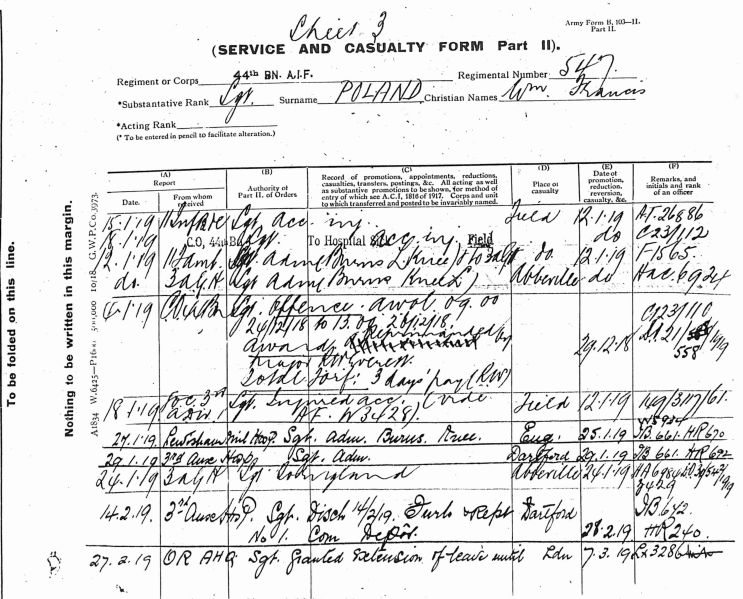 Sheet 3
Army Form B. 103—II.
Part II.
(SERVICE AND CASUALTY FORM Part II).
Regiment or Corps 44th BN. A.I.F. Regimental Number 547.
*Substantive Rank Sgt. Surname POLAND Christian Names Wm. Francis
*Acting Rank
(* To be entered in pencil to facilitate alteration.)
To be folded on this line.
Nothing to be written in this margin.
(A) Report
Date. From whom received
(B) Authority of Part II. of Orders
(C) Record of promotions, appointments, reductions, casualties, transfers, postings, &c. All acting as well as substantive promotions to be shown, for method of entry see A.C.I. 1816 of 1917. Corps and unit to which transferred and posted to be invariably named.
(D) Place of casualty
(E) Date of promotion, reduction, reversion, casualty, &c.
(F) Remarks, and initials and rank of an officer
15.1.19 Sgt acc inj. Field 12.1.19 AF. 26886
18.1.19 C.O, 44th Bn Sgt. To Hospital acc inj Field do C23/112
12.1.19 Sgt adm (Burns L Knee) do. 12.1.19 F1565.
do. 3 AGH Sgt Adm (Burns Knee L) Abbeville do 6924
4.1.19 Sgt. Offence. awol 09.00
26/12/18 to 13.0 28/12/18.
award. Reprimanded by
Major
Total Forf: 3 days' pay (RW)
29.12.18
C/23/110
558
18.1.19 Sgt. Injured acc. (vide Field 12.1.19 149/3/17/61.
A.F. W3428).
27.1.19. Lewisham Mil Hosp. Sgt. Adm. Burns. Knee. Eng. 25.1.19 JB. 661. HR 670
29.1.19 3rd Aux Hosp. Sgt. Adm. Dartford 29.1.19 JB 661. HR 692
24.1.19 3 AGH Sgt To England Abbeville 24.1.19
14.2.19. 3rd Aux Hosp. Sgt. Disch 14/2/19. Furlo & Rept Dartford JB 642.
No 1. Com Depôt. 28.2.19 HR 240.
27.2.19 OR AHQ Sgt. Granted Extension of leave until Ldn 7.3.19 Lx 3286